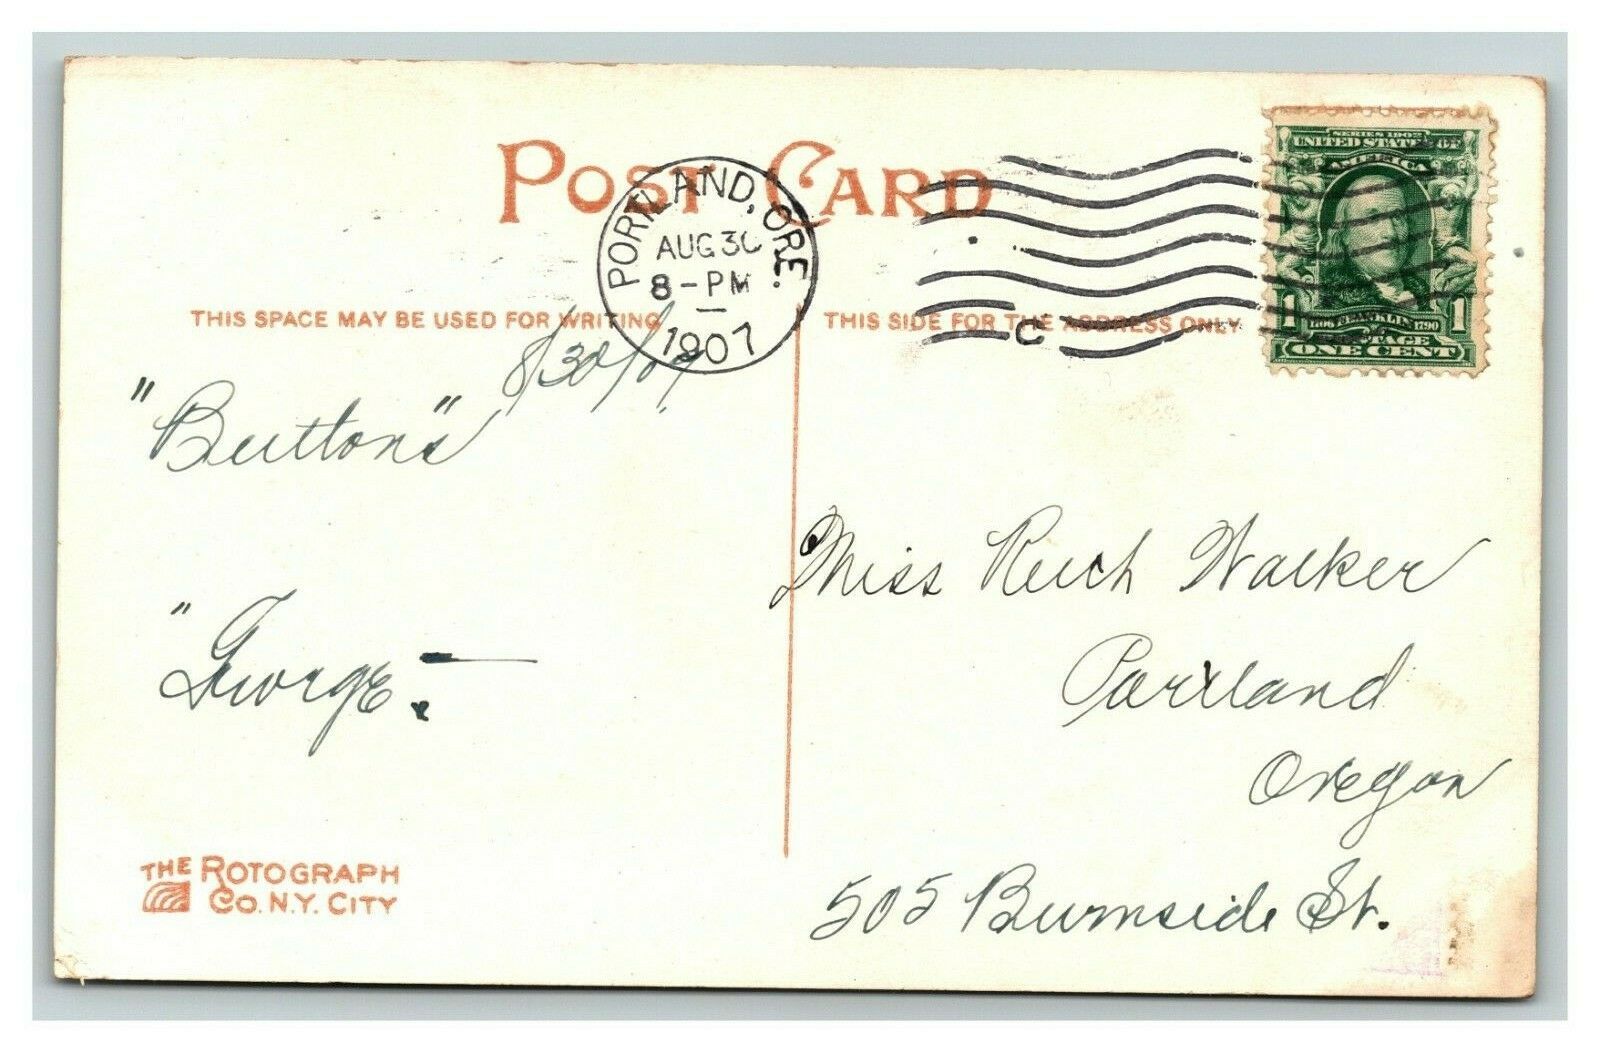 POST CARD
PORTLAND, ORE.
AUG 30
8-PM
1907
C
SERIES 1902
UNITED STATES OF
AMERICA
1 1706 FRANKLIN 1790 1
POSTAGE
ONE CENT
THIS SPACE MAY BE USED FOR WRITING
THIS SIDE FOR THE ADDRESS ONLY
8/30/07.
"Buttons"
"George.
Miss Walker
Portland
Oregon
505 Burnside St.
THE ROTOGRAPH
CO. N.Y. CITY